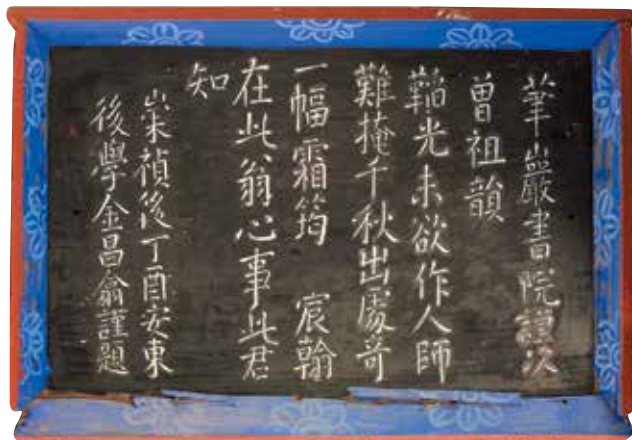 華巖書院謹次
曾祖韻
韜光未欲作人師
難掩千秋出處奇
一幅霜筠 宸翰
在此翁心事此君
知
崇禎後丁酉安東
後學金昌翕謹題